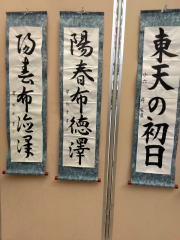 東天の初日
陽春布德澤
陽春布德澤